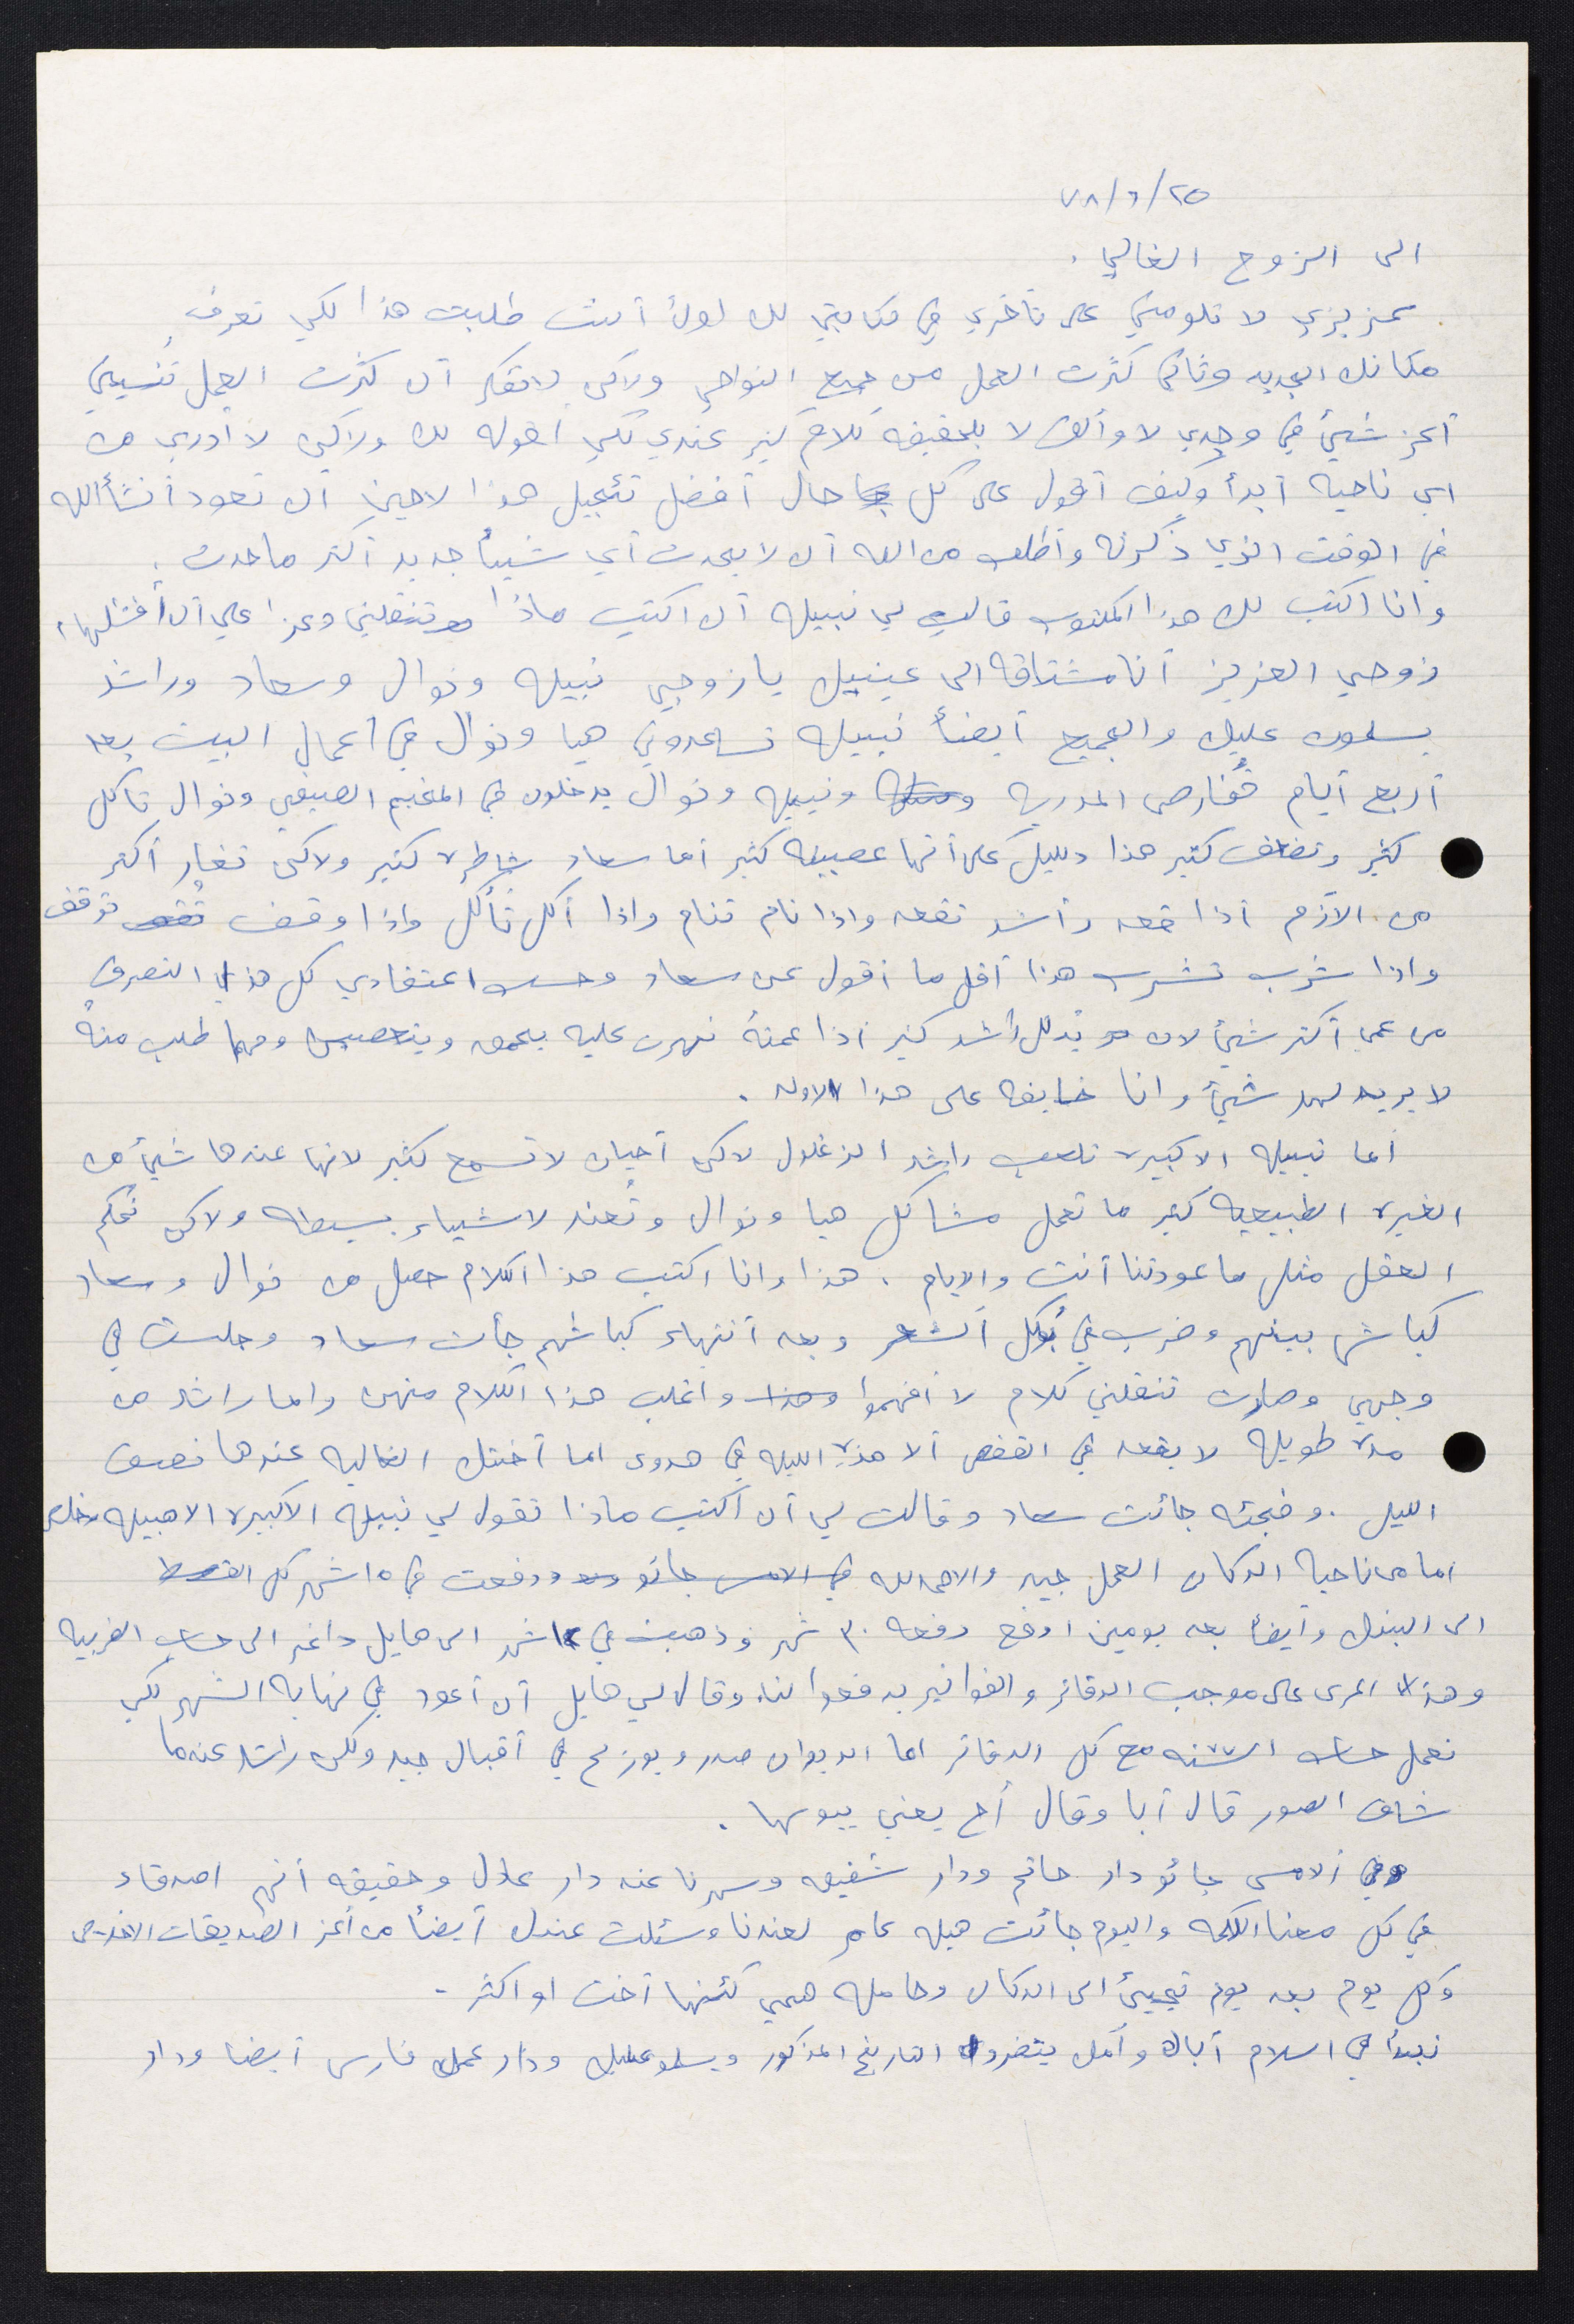 ٢٥/٦/٧٨
الى الزوج الغالي.
عزيزي لا تلومني على تأخري في مكاتبتي لك اولاً أنت طلبت هذا لكي تعرف
مكانك الجديد وثاني كثرت العمل من جميع النواحي ولاكن لا تفكر أن كثرت العمل تنسيني
أعز شيئ في وجدي لا وألف لا بلحقيقه كلام كثير عندي لكي اقوله لك ولاكن لا أدري من
اي ناحيه أبدأ وكيف أقول على كل حال أفضل تئجيل هذا لاحين أن تعود أنشأالله
في الوقت الذي ذكرته وأطلب من الله أن لا يحدث أي شيئاً جديد أكثر ما حدث.
وانا اكتب لك هذا المكتوب قالت لي نبيله أن اكتبي ماذا تنقليني وعزا علي أن أفشلها،
زوجي العزيز أنا مشتاقه الى عينيك يا زوجي نبيله ونوال وسعاد وراشد
يسلمون عليك والجميع أيضاً نبيله تساعدوني هيا ونوال في أعمال البيت بعد
أربع أيام المدرسه ونبيله ونوال يدخلون في المخيم الصيفي ونوال تاكل
كثير وتضعف كتير هذا دليل على أنها عصبيه كثير أما سعاد شاطره كثير ولاكن تغار أكثر
من الآزم أذا قعد رأشد تقعد واذا نام تنام واذا أكل تأكل واذا وقف توقف
واذا شرب تشرب هذا أقل ما أقول عن سعاد وحسب اعتقادي كل هذا التصرف
من عمي أكثر شيئ لان بدلل رأشد كثير أذا عمتهُ نهرت عليه بحمق ومهما طلب منهُ
لا يريد لهد شيئ وانا خايفه على هذا الاولد.
أما نبيله الاكبيره تلعب راشد الزغلول لاكن أحيان لا تسمع كثير لانها عندها شيئ من
الغيره الطبيعيه كثير ما تعمل مشاكل هيا ونوال وتعند لاشياء بسيطه ولاكن نُحكم
العقل مثل ما عودتنا أنت والايام. هذا وانا اكتب هذا الكلام حصل من نوال وسعاد
كباش بينهم وضرب في بُكل الشعر وبعد أنتهاء كباشهم جأت سعاد وجلست في
وجهي وصارت تنقلني كلام لا أفهموا واغلب هذا الكلام منهن واما راشد من
مده طويله لا يقعد في القفص ألا هذه الليله في هدوى اما أختك الغاليه عندها نصف
الليل. وفجئه جائت سعاد وقالت لي أن أكتب ماذا تقول لي نبيله الاكبيره الاهبيله
اما من ناحية الدكان العمل جيد والاحمدلله في الامس جائو ودفعت في ٥ اشهر كل القسط
الى البنك وأيضاً بعد يومين ادفع دفعه ٣٠ شهر وذهبت في شهر الى هايل داغر الى حساب الضريبه
وهذا المرى على موجب الدفاتر والفواتير يدفعوا لنا، وقال لي هايل أن أعود في نهاية الشهر لكي
نعمل حساب ال٧٧سنه مع كل الدفاتر اما الديوان صدر ويوزع في أقبال جيد ولكن راشد عندما
شاف الصور قال أبا وقال أح يعني يبوسها.
وفي الامس جائو دار حاتم ودار شفيق وسهرنا عند دار عادل وحقيقه أنهم اصدقاء
في كل معنا الكلمه واليوم جائت هيله عامر لعندنا وسئلت عنك أيضاً من أعز الصديقات
وكل يوم بعد يوم تيجيئ الى الدكان وحامله همي كئنها أخت او اكثر.
نبدأ في اسلام أباك وأمك ينتضروا التاريخ المذكور ويسلمو عليك ودار عمك فارس أيضا ودار